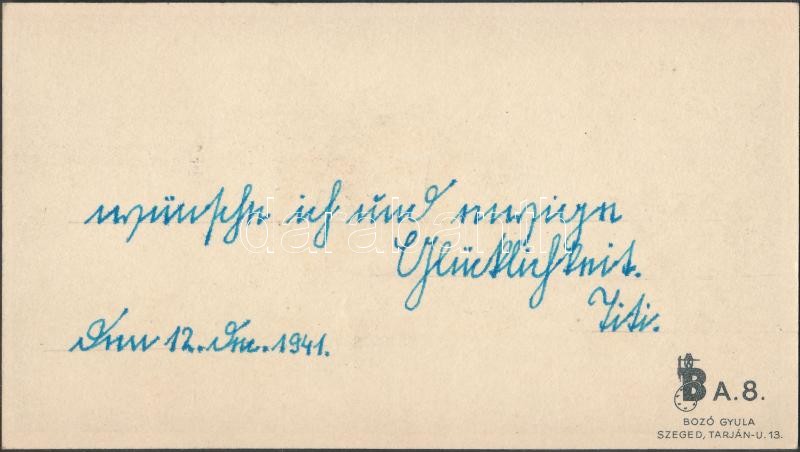 wünsche ich und ewige
Glücklichkeit.
Titi.
Den 12. Dez. 1941.
B A.8.
BOZÓ GYULA
SZEGED, TARJÁN-U. 13.